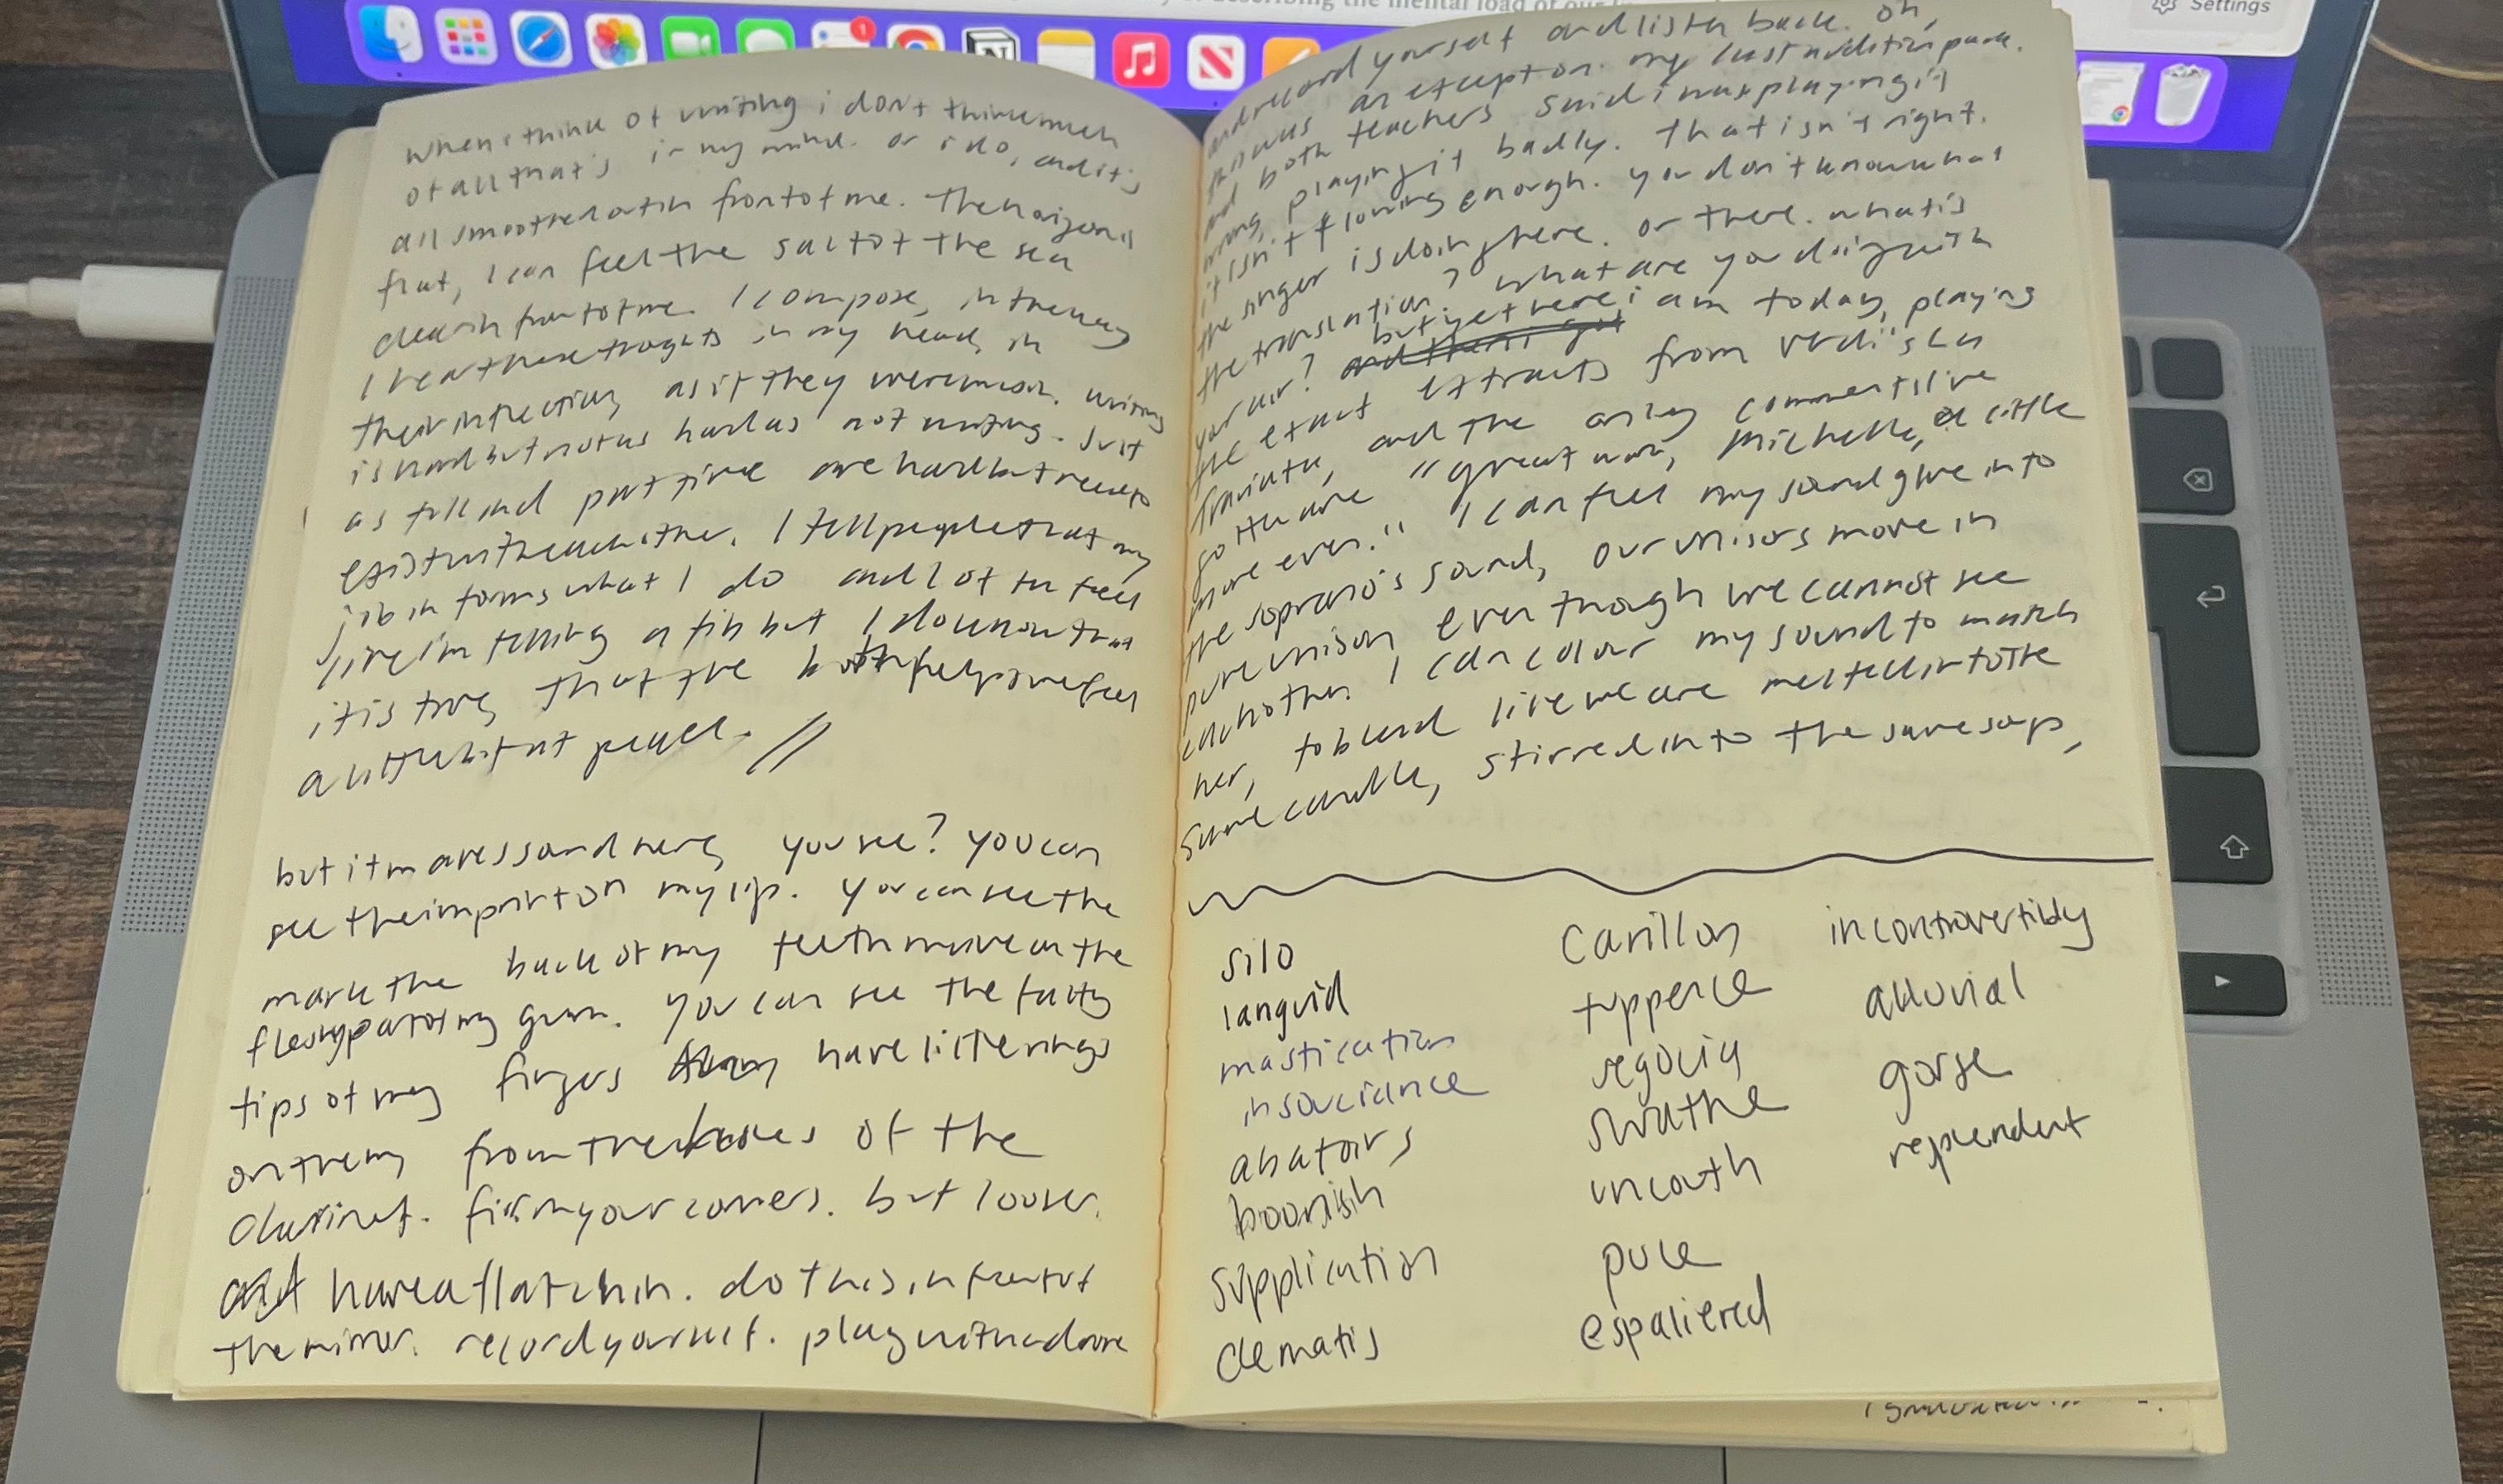 describing the mental load of our
Settings
when i think of writing i don't think much
of all that's in my mind. or i do, and it's
all smoothed out in front of me. The horizon is
flat, I can feel the salt of the sea
clear in front of me. I compose, in the way
I hear these thoughts in my head, in
their inflection, as if they were music. writing
is hard but not as hard as not writing. Just
as full and part time are hard but need to
exist with each other. I tell people that my
job informs what I do and lot to feel
like i'm telling a fib but I do know that
it is true, that the both help me feel
a little bit at peace. //
but it makes sound here, you see? you can
see the imprint on my lip. you can see the
mark the back of my teeth make on the
fleshy part of my gum. you can see the fatty
tips of my fingers have little rings
on them, from the holes of the
clarinet. firm your corners. but looser.
have a flat chin. do this in front of
the mirror. record yourself. play with a drone
and record yourself and listen back. oh,
this was an exception. my last audition panel
and both teachers said i was playing it
wrong, playing it badly. that isn't right.
it isn't flowing enough. you don't know what
the singer is doing here. or there. what is
the translation? what are you doing with
your air? but yet here i am today, playing
the exact extracts from verdi's La
Traviata, and the only comments i've
gotten are "great work, Michelle, a little
more even." I can feel my sound give into
the soprano's sound, our unisons move in
pure unison even though we cannot see
each other. I can colour my sound to match
her, to blend like we are melted into the
same candle, stirred into the same soup,
silo carillon incontrovertibly
languid tuppence alluvial
mastication regality gorse
insouciance swathe resplendent
abatoirs uncouth
boorish puce
supplication espaliered
clematis